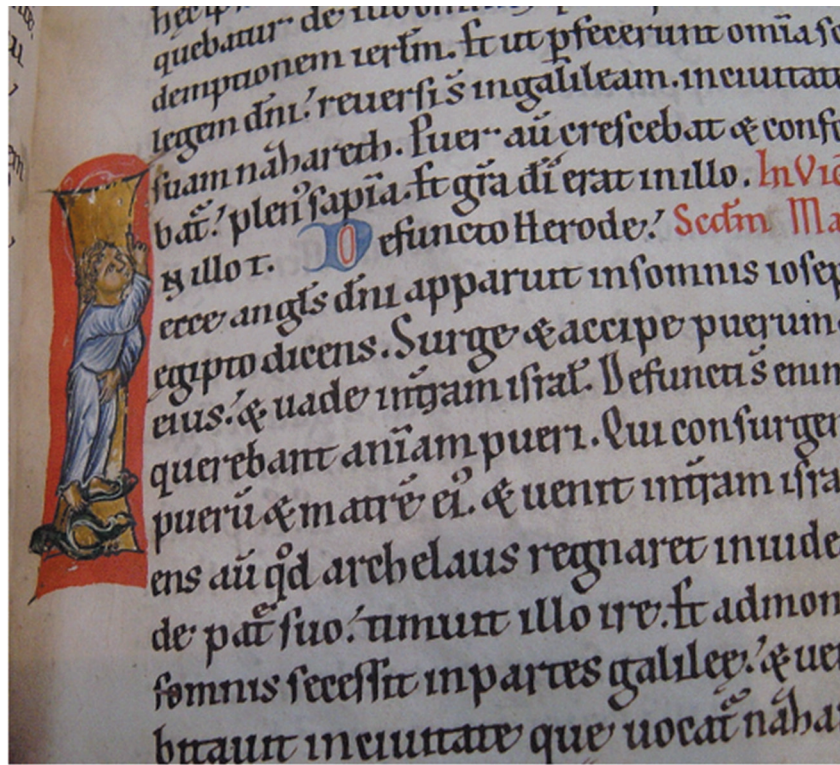 quebatur de illo omnib
demptionem ierłm. Et ut pfecerunt omīa sc
legem dn̄i: reuersi s̄ in galileam. in ciuitate
suam nāhareth. Puer aū crescebat & confo
bat̄: plen᾽ sapīa. Et gr̄a dī erat in illo. In Vig
N illo t. Defuncto Herode: Scdm Ma
ecce angłs dn̄i apparuit in somnis iosep
egipto dicens. Surge & accipe puerum
eius: & uade in tr̄am israł. Defunctis enim
querebant anīam pueri. Qui consurgen
puerū & matrē ei᾽. & uenit in tr̄am isra
ens aū qd̄ archelaus regnaret in iude
de pat̄e suo: timuit illo ire. Et admon
somnis secessit in partes galileę: & ue
bitauit in ciuitate que uocat̄ nāha